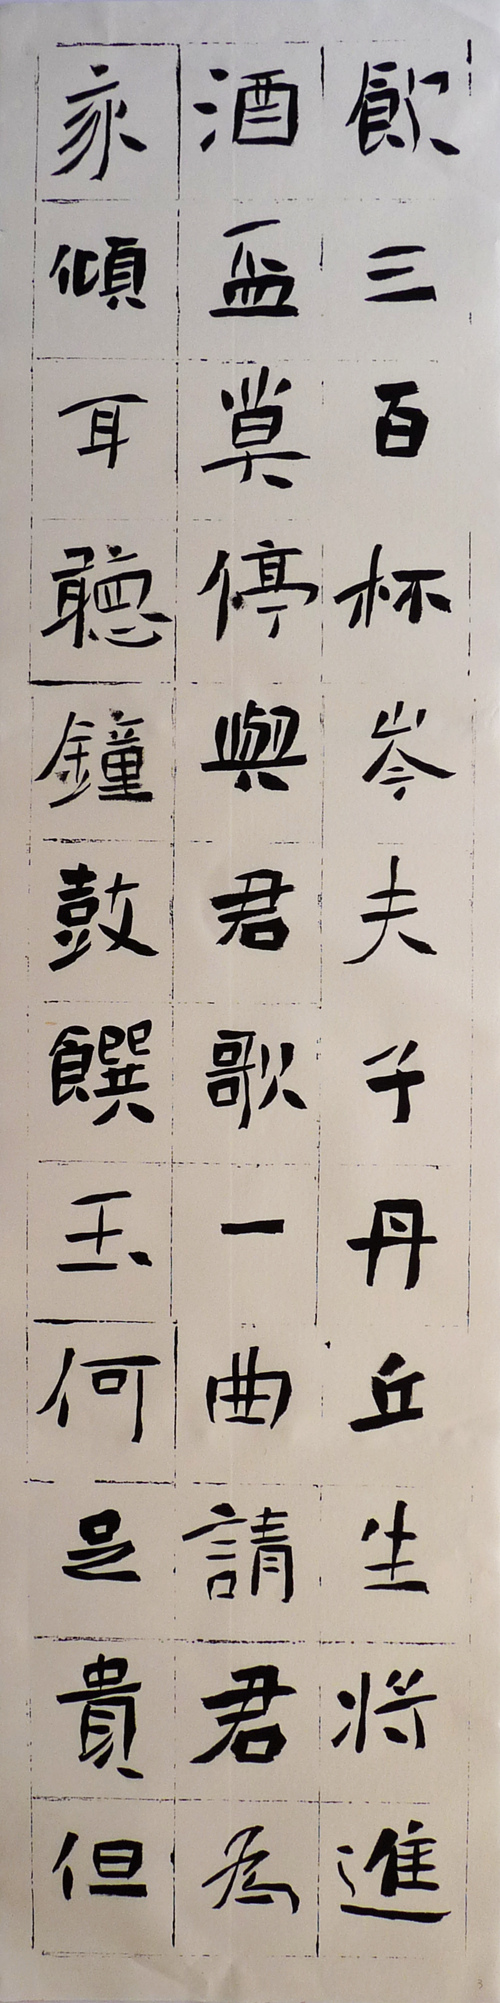 飲三百杯岑夫子丹丘生将進
酒盃莫停與君歌一曲請君為
我傾耳聽鐘鼓饌玉何足貴但
3